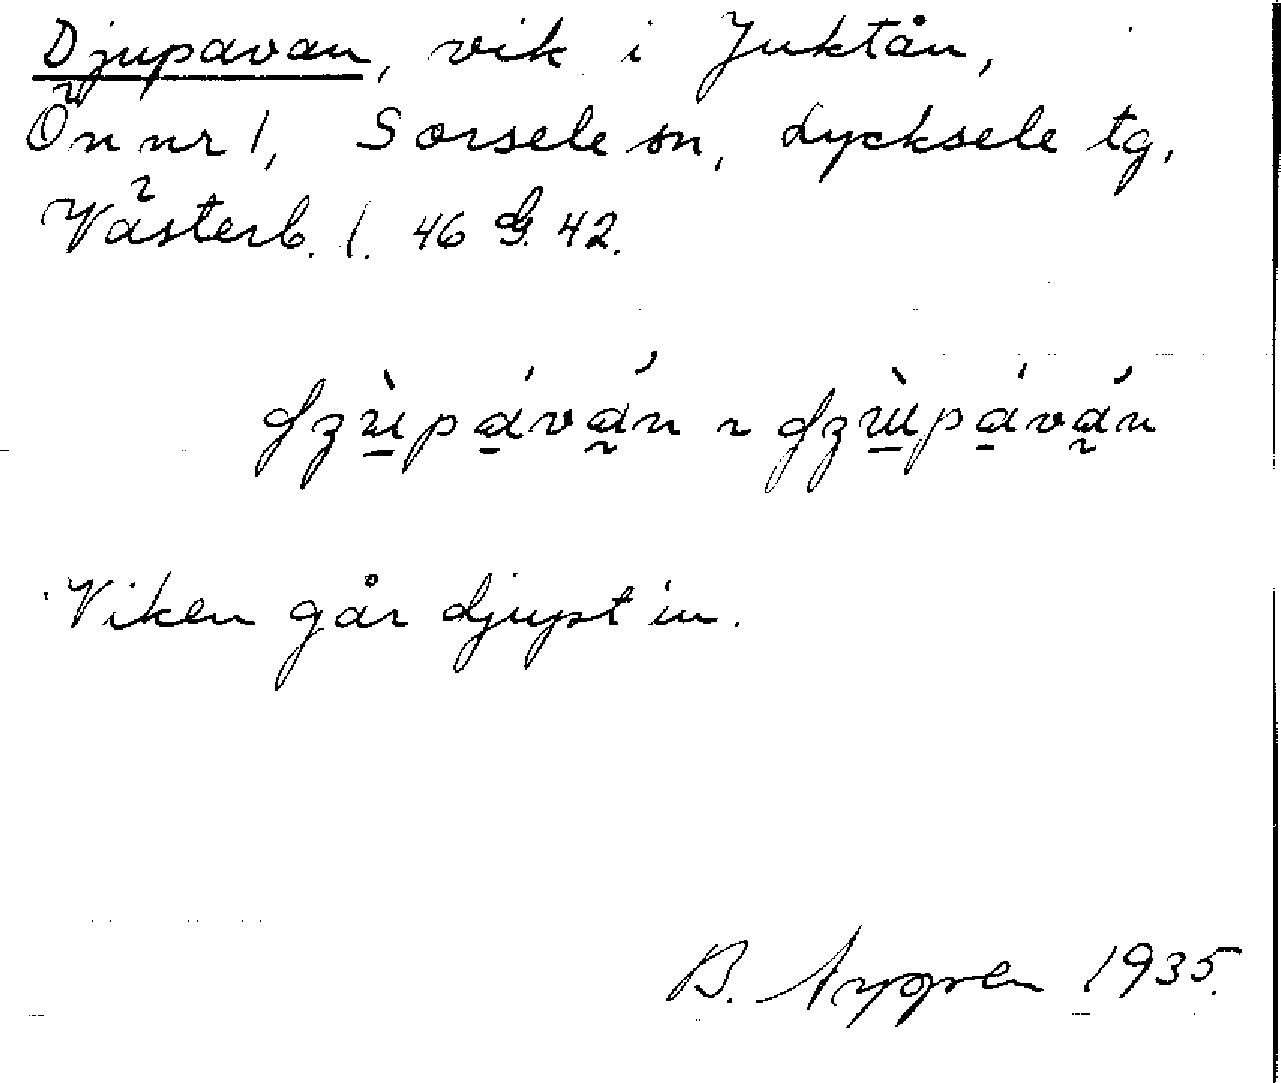 Djupavan, vik i Juktån,
Ön nr 1, Sorsele sn, Lycksele tg,
Västerb. l. 46 G. 42.
Viken går djupt in.
B. Nygren 1935.